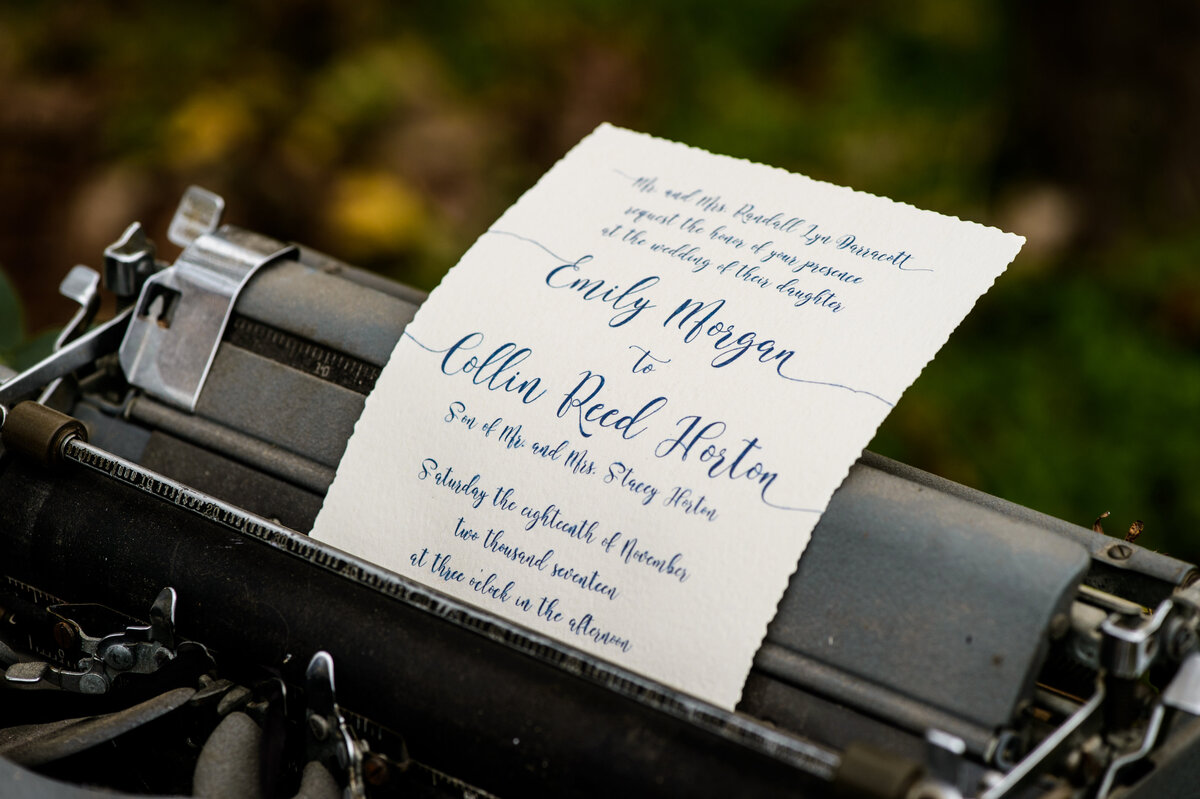 Mr. and Mrs. Randall Lyn Darracott
request the honor of your presence
at the wedding of their daughter
Emily Morgan
to
Collin Reed Horton
Son of Mr. and Mrs. Stacey Horton
Saturday the eighteenth of November
two thousand seventeen
at three o'clock in the afternoon